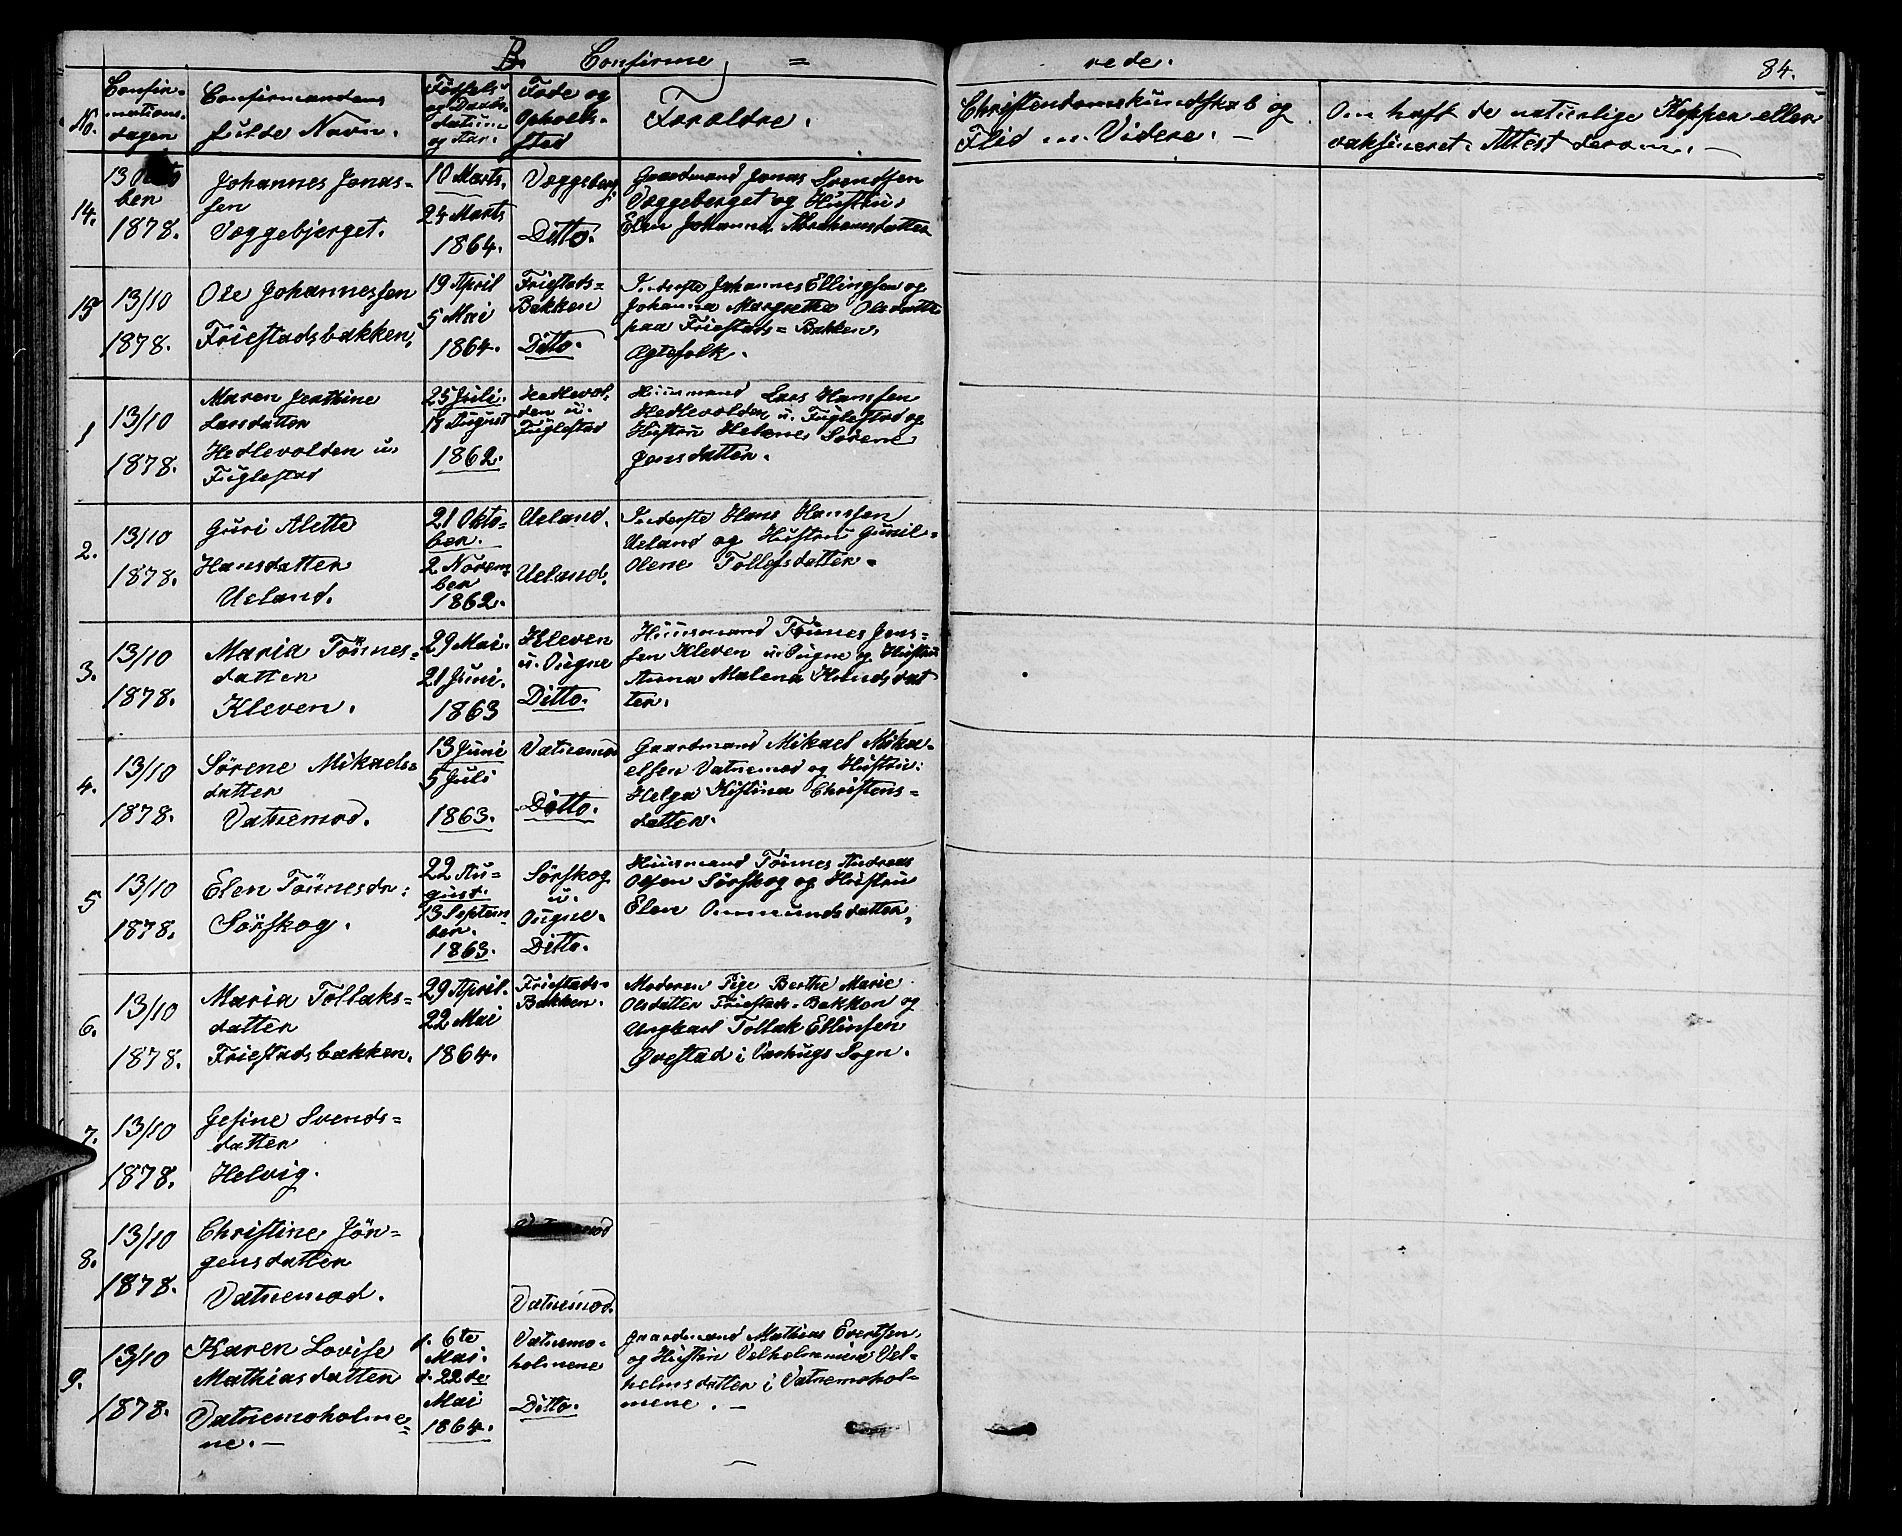 B. Confirme = rede. 84.
No.
Confir-
mations-
dagen
Confirmandens
fulde Navn.
Fødsels-
og Daabs-
datum
og Aar.
Føde og
Opholds-
sted
Forældre.
Christendomskundskab og
Flid m. Videre. —
Om haft de naturlige Kopper eller
vaksineret. Attest derom. —
14.
13 Okto
ber
1878.
Johannes Jonas-
sen
Væggebjerget.
10 Marts.
24 Marts
1864.
Væggeberg
Ditto.
Gaardmand Jonas Svendsen
Væggeberget og Hustru
Elen Johanna Abrahamsdatter
15
13/10
1878.
Ole Johannessen
Friestadsbakken.
19 April
5 Mai
1864.
Friestads=
Bakken
Ditto.
Inderste Johannes Ellingsen og
Johanna Margretha Olsdatter
paa Friestads=Bakken,
Ægtefolk.
1
13/10
1878.
Maren Jerthine
Larsdatter
Hedlevolden u.
Fuglestad
25 Juli.
18 August
1862.
Hedlevol,
den u.
Fuglestad
Huusmand Lars Hansen
Hedlevolden u. Fuglestad og
Hustru Helene Sørene
Jonsdatter.
2.
13/10
1878.
Guri Alette
Hansdatter
Ueland.
21 Okto=
ber.
2 Novem
ber
1862.
Ueland.
Ueland.
Inderste Hans Hansen
Ueland og Hustru Gunil=
Olene Tollefsdatter.
3.
13/10
1878.
Maria Tönnes=
datter
Kleven.
29 Mai.
21 Juni.
1863
Kleven
u. Ougne
Ditto.
Huusmand Tönnes Jens=
sen Kleven u. Ougne og Hustru
Anna Malena Knudsdat
ter.
4.
13/10
1878.
Sörene Mikaels=
datter
Vatnemod.
13 Juni
5 Juli
1863.
Vatnemod
Ditto.
Gaardmand Mikael Mika=
elsen Vatnemod og Hustru:
Helga Kistina Christens=
datter.
5
13/10
1878.
Elen Tönnesdr:
Sörskog.
22 Au=
gust.
13 Septem
ber.
1863.
Sörskog
u.
Ougne.
Ditto.
Huusmand Tönnes Andreas
Olsen Sörskog og Hustru
Elen Ommundsdatter,
6.
13/10
1878.
Maria Tollaks=
datter
Friestadsbakken.
29 April.
22 Mai
1864.
Friestads=
Bakken.
Moderen Pige Berthe Marie
Olsdatter Friestads=Bakken og
Ungkarl Tollak Ellinsen
Ørestad i Varhugs Sogn.
7.
13/10
1878.
Gesine Svends=
datter
Helvig.
8.
13/10
1878.
Christine Jör=
gensdatter
Vatnemod.
Vatnemod.
9.
13/10
1878.
Karen Lovise
Mathiasdatter
Vatnemoholme=
ne. —
d. 6te
Mai.
d. 22de
Mai
1864.
Vatnemo=
holmene
Ditto.
Gaardmand Mathias Evertsen
og Hustru Velhelmmine Vel=
helmsdatter i Vatnemohol=
mene. —